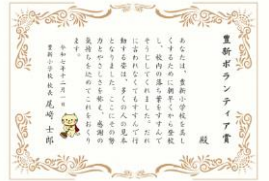 豊新ボランティア賞
殿
あなたは、豊新小学校を美し
くするために朝早くから登校
し、校内の落ち葉をすすんで
そうじしてくれました。だれ
に言われなくてもすすんで行
動する姿は、多くの人の見本
となりました。ここにその努
力とやさしさを称え、感謝の
気持ちを込めてこれをおくり
ます。
令和七年十二月一日
豊新小学校 校長 尾﨑 士郎